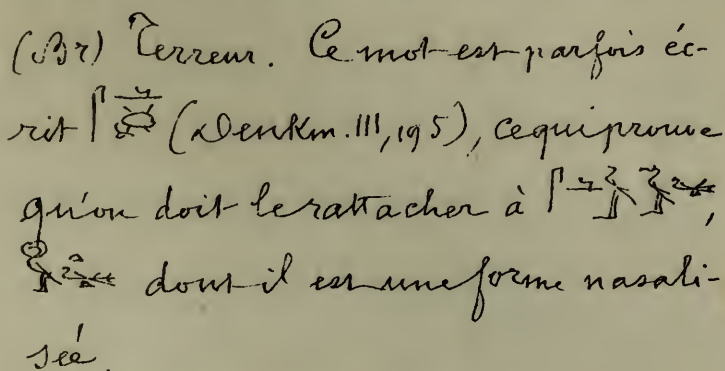 (Br) Terreur. Ce mot est parfois éc-
rit (Denkm. III, 195), ce qui prouve
qu'on doit le rattacher à ,
dont il est une forme nasali-
sée.